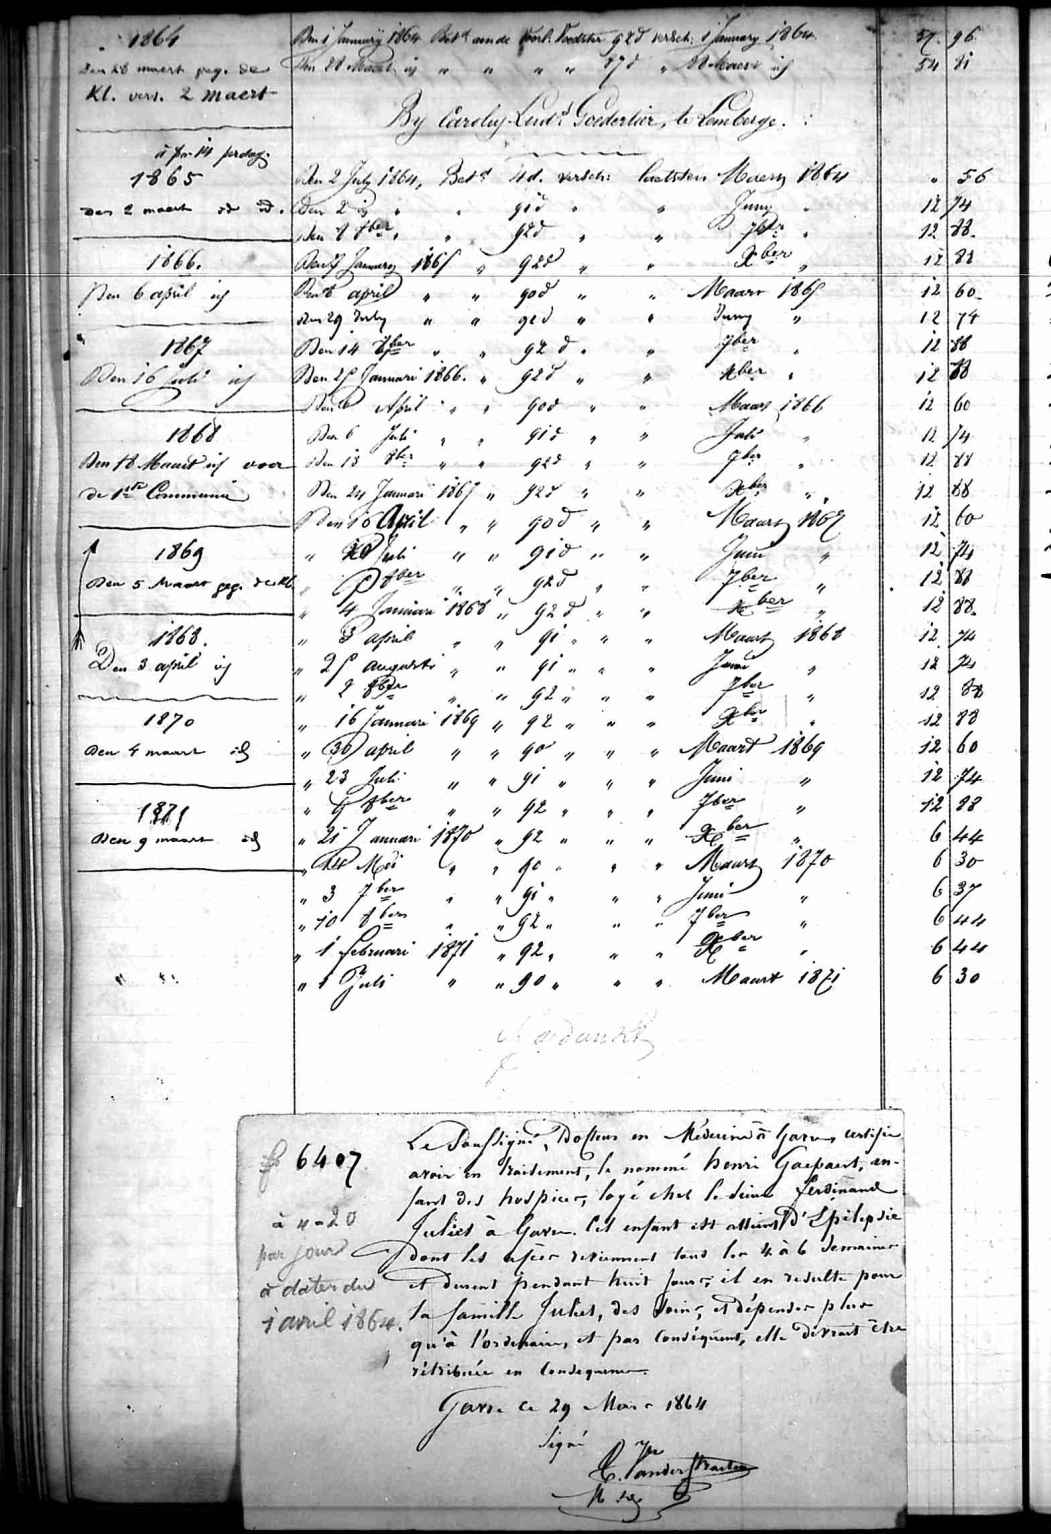 1864
Den 28 maert geg. de
Kl. vers. 2 maert
1865
den 2 maert id id.
1866.
Den 6 april id
1867
Den 16 juli id
1868
Den 18 Maart id voor
de 1ste Communie
1869
Den 5 Maart geg. de kl.
1868.
Den 3 april id
1870
den 4 maart id
1871
den 9 maart id
Den 1 January 1864 Bet. aan de voorl. Voedster 92d versch. 1 January 1864 57. 96
Den 28 Maert id " " " " 87d " 28 Maert id 54 81
By Carolus Ludd Goederlier, te Lemberge.
Den 2 July 1864, Bet. 4d. versch: laetsten Maert 1864 " 56
Den 2 id " " 91d " " Juny " 12 74
Den 8 8ber " " 92d " " 7ber " 12 88.
Den 7 January 1865 " 92d " " Xber " 12 88
Den 8 april " " 90d " " Maart 1865 12 60
den 29 July " " 91d " " Juny " 12 74
Den 14 8ber " " 92d " " 7ber " 12 88
Den 25 Januari 1866. " 92d " " Xber " 12 88
Den 6 April " " 90d " " Maart 1866 12 60
Den 6 Juli " " 91d " " Juli " 12 74
Den 13 8ber " " 92d " " 7ber " 12 88
Den 24 Januari 1867 " 92d " " Xber " 12 88
Den 16 April " " 90d " " Maart 1867 12 60
" 20 Juli " " 91d " " Juni " 12 74
" 8ber " " 92d " " 7ber " 12 88
" 4 Januari 1868 " 92d " " Xber " 12 88.
" 3 april " " 91 " " " Maart 1868 12 74
" 25 augusti " " 91 " " " Juni " 12 74
" 2 8ber " " 92 " " " 7ber " 12 88
" 16 Januari 1869 " 92 " " " Xber " 12 88
" 30 april " " 90 " " " Maart 1869 12 60
" 23 Juli " " 91 " " " Juni " 12 74
" 8ber " " 92 " " " 7ber " 12 88
" 21 Januari 1870 " 92 " " " Xber " 6 44
" Mei " " 90 " " " Maart 1870 6 30
" 3 7ber " " 91 " " " Juni " 6 37
" 10 8ber " " 92 " " " 7ber " 6 44
" 1 februari 1871 " 92 " " " Xber " 6 44
" 1 Juli " " 90 " " " Maart 1871 6 30
gedankt
6407
à 4=20
par jour
à dater du
1 avril 1864.
Le Soussigné, Docteur en Médecine à Gavre, certifie
avoir en traitement, le nommé Henri Gaepaert, en-
fant des hospices, logé chez le sieur Ferdinand
Juliet à Gavre. Cet enfant est atteint d'Epilepsie
dont les accès reviennent tous les 4 à 6 semaines
et durent pendant huit jours; il en resulte pour
la famille Juliet, des soins, et dépenses plus
qu'à l'ordinaire, et par conséquent, elle devrait être
rétribuée en conséquence.
Gavre ce 29 Mars 1864
Signé
Vanderstraeten